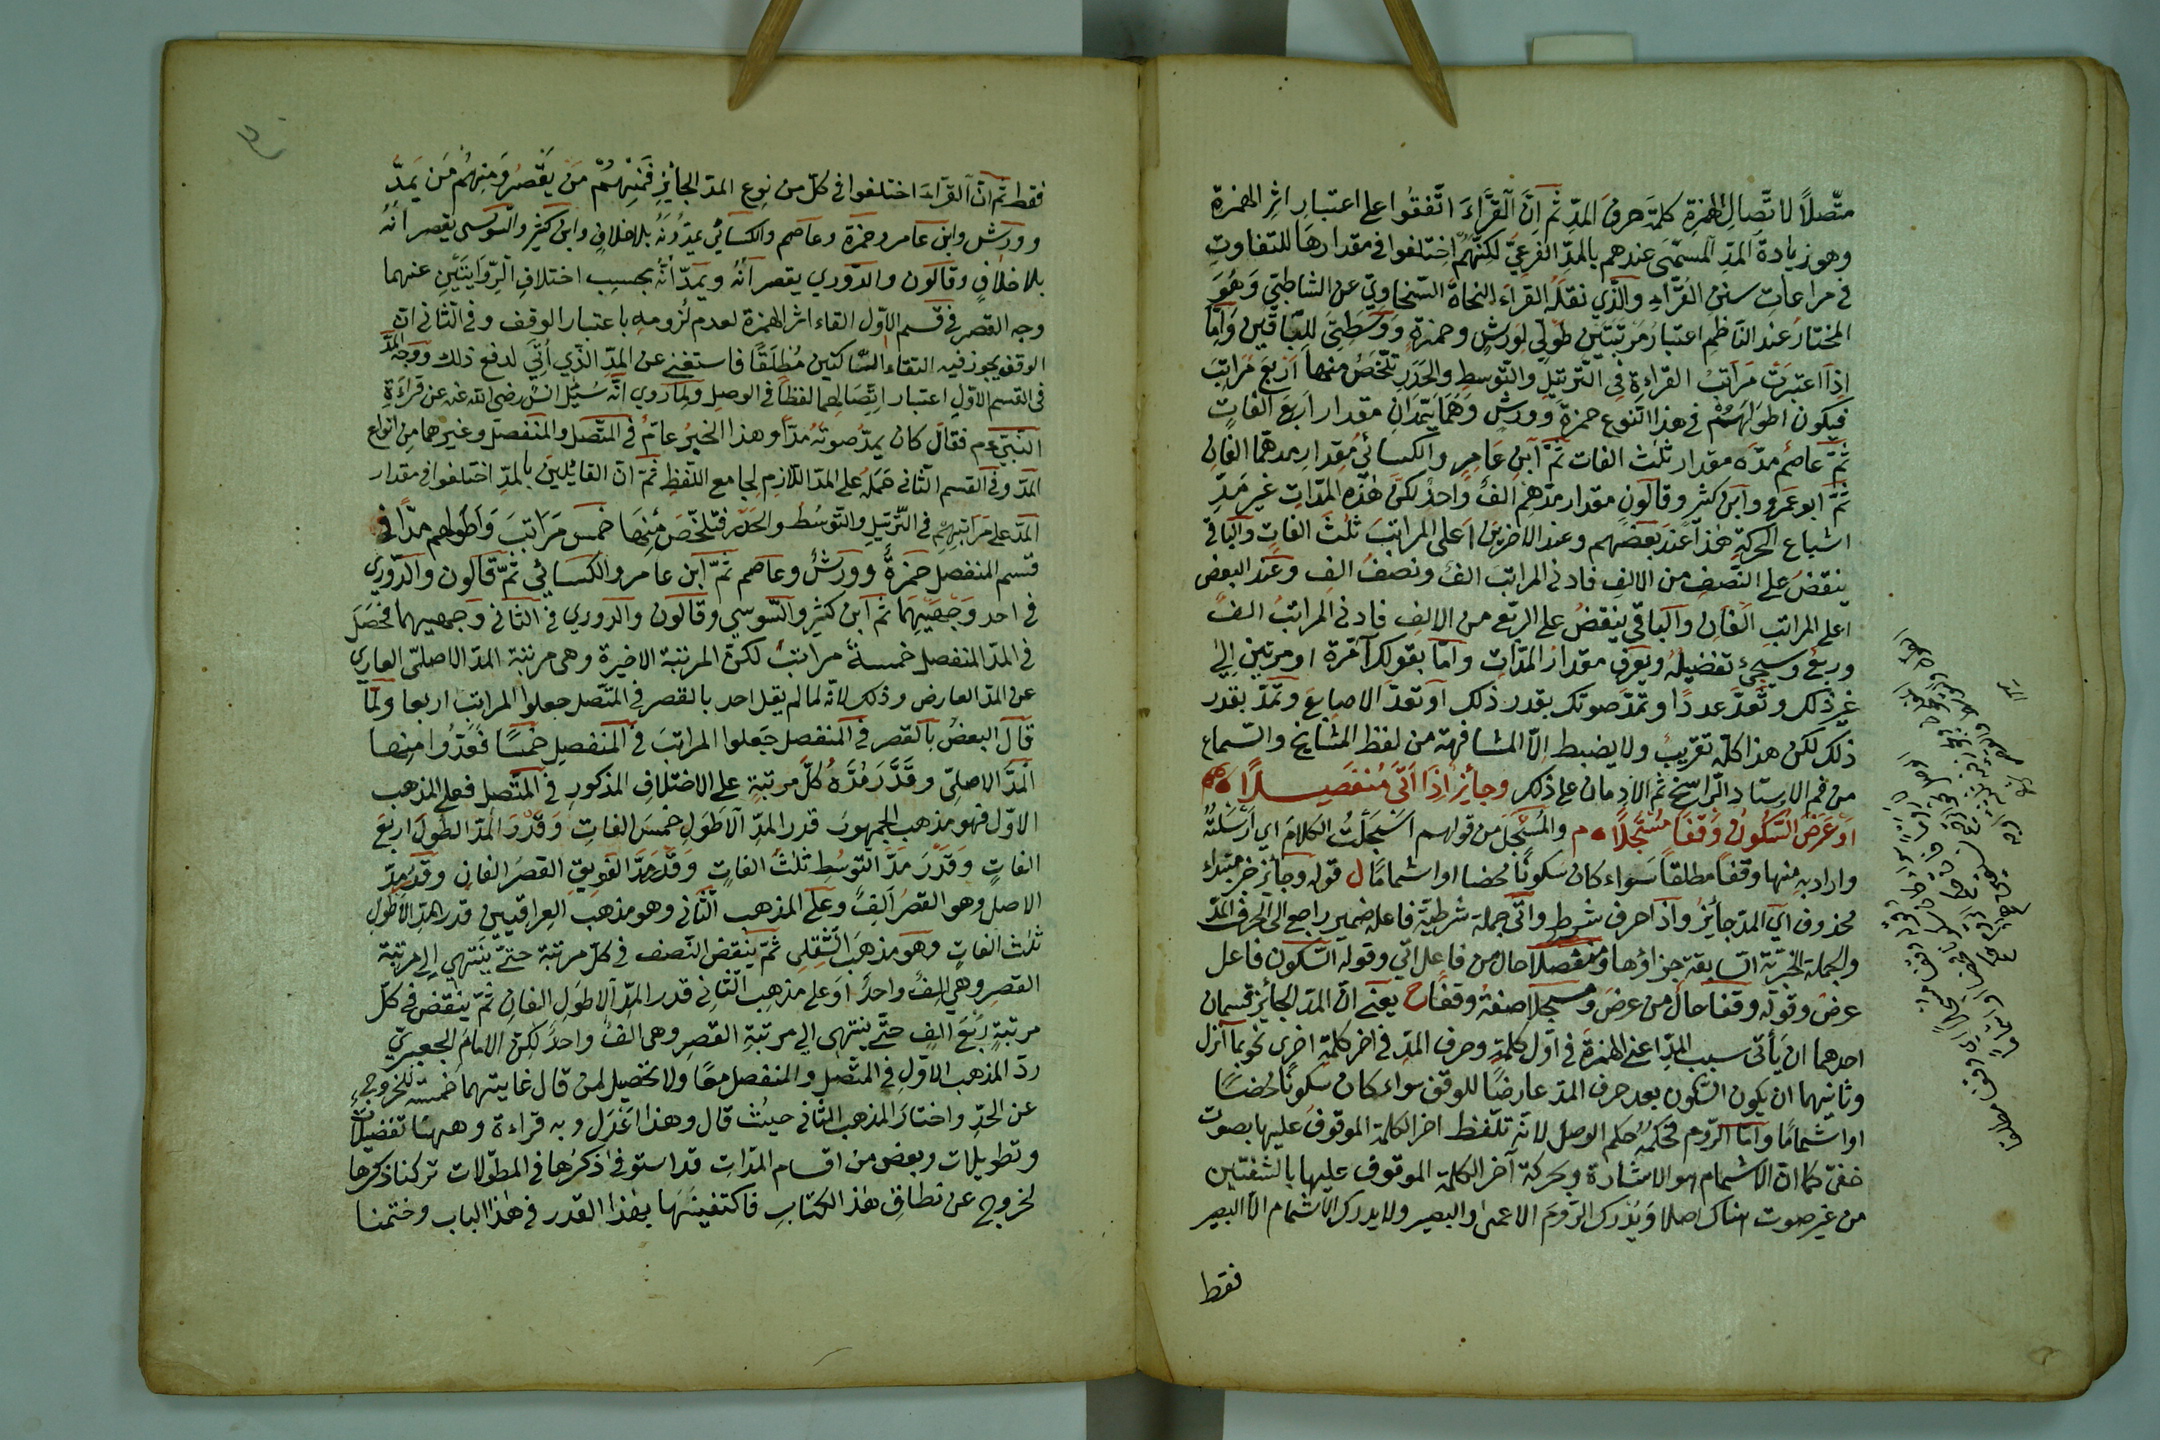 متّصلًا لاتّصال الهمزة كلمة حرف المدّ ثم انّ القرّاء اتّفقوا على اعتبار اثر الهمزة
وهو زيادة المدّ المسمّى عندهم بالمدّ الفرعيّ لكنّهم اختلفوا في مقدارها للتفاوت
في مراعات سنن القرّاء والّذي نقله القراء النحاة السّخاويّ عن الشاطبّي وهو
المختار عند النّاظم اعتبار مرتبتين طولي لورش وحمزة ووسطي للبّاقين وامّا
اذا اعتبرت مراتب القراءة في التّرتيل والتّوسط والحدر تلخّص منها اربع مراتب
فيكون اطولهم في هذا النّوع حمزة وورش وهما يمدّان مقدار اربع الفات
ثمّ عاصم مدّه مقدار ثلث الفات ثمّ ابن عامر والكسائي مقدار مدهما الفان
ثمّ ابو عمرو وابن كثير وقالون مقدار مدّهم الف واحد لكنّ هذه المدّات غير مدّ
اشباع الحركة هذا عند بعضهم وعند الاخرين اعلى المراتب ثلث الفات والباقي
ينقض على النّصف من الالف فادنى المراتب الف ونصف الف وعند البعض
اعلى المراتب الفان والباقي ينقض على الرّبع من الالف فادنى المراتب الف
وربع وسيجيء تفضيله ويعرف مقدار المدّات وامّا بقولك آ مرّة او مرتين الى
غير ذلك وتعدّ عددًا وتمدّ صوتك بقدر ذلك او تعدّ الاصابع وتمدّ بقدر
ذلك لكن هذا كلّه تقريب ولا يضبط الّا المشافهة من لفظ المشايخ والسّماع
من فم الاستاد الرّاسخ ثم الادمان على ذلك وجائز اذا اتى منفصلًا
او عرض السّكون وقفًا مسجّلًا م والمسجّل من قولهم اسجلت الكلام اي ارسلته
واراد به منها وقفًا مطلقًا سواء كان سكونًا محضا او اشمامًا ل قوله وجائز خبر مبتداء
محذوف اي المدّ جائز واذا حرف شرط واتى جملة شرطيّة فاعله ضمير راجع الى حرف المدّ
والجملة الخبريّة السّابقة جزاؤها ومنفصلًا حال من فاعل اتي وقوله السّكون فاعل
عرض وقوله وقفا حال من عرض ومسجلًا صفة وقفًا ح يعني انّ المدّ الجائز قسمان
احدهما ان يأتى سبب المدّ اعني الهمزة في اوّل كلمة وحرف المدّ في اخر كلمة اخرى نحو بما انزل
وثانيهما ان يكون السّكون بعد حرف المدّ عارضًا للوقف سواء كان سكونًا محضًا
او اشمامًا وامّا الرّوم فحكمه حكم الوصل لانّه تلفّظ اخر الكلمة الموقوف عليها بصوت
خفىّ كما انّ الاشمام هو الاشارة وبحركة آخر الكلمة الموقوف عليها بالشفتين
من غير صوت هناك اصلا ويدرك الرّوم الاعمى والبصير ولا يدرك الاشمام الّا البصير
فقط
فقط ثم انّ القرّاء اختلفوا في كلّ من نوع المدّ الجائز فمنهم من يقصر ومنهم من يمدّ
وورش وابن عامر وحمزة وعاصم والكسائي يمدّونه بلا خلاف وابن كثير والسّوسى يقصرانه
بلا خلاف وقالون والدّوري يقصرانه ويمدّانه بحسب اختلاف الرّوايتين عنهما
وجه القصر في قسم الاوّل القاء اثر الهمزة لعدم لزومه باعتبار الوقف وفي الثانى انّ
الوقف يجوز فيه التقاء السّاكنين مطلقًا فاستغنى عن المدّ الذّي اتى لدفع ذلك ووجه المدّ
في القسم الاوّل اعتبار اتّصالهما لفظًا في الوصل ولما روي انّه سئل انس رضى الله عنه عن قراءة
النّبيّ عم فقال كان يمدّ صوته مدّا وهذا الخبر عامّ في المتّصل والمنفصل وغيرهما من انواع
المدّ وفي القسم الثانى حمله على المدّ اللّازم لجامع اللّفظ ثمّ انّ القائلين بالمدّ اختلفوا في مقدار
المدّ على مراتبهم في التّرتيل والتّوسّط والحدر فتلخّص منها خمس مراتب واطولهم مدًّا في
قسم المنفصل حمزة وورش وعاصم ثمّ ابن عامر والكسائي ثمّ قالون والدّوري
في احد وجهيهما ثم ابن كثير والسّوسي وقالون والدوري في الثانى وجهيهما فحصل
في المدّ المنفصل خمسة مراتب لكنّ المرتبة الاخيرة وهى مرتبة المدّ الاصلىّ العاري
عن المدّ العارض وذلك لانّه لما لم يقل احد بالقصر في المتّصل جعلوا المراتب اربعا ولمّا
قال البعض بالقصر في المنفصل جعلوا المراتب في المنفصل خمسًا فعدّوا منها
المدّ الاصلىّ وقدّر مدّه كلّ مرتبة على الاختلاف المذكور في المتّصل فعلى المذهب
الاوّل فهو مذهب الجمهور قدر المدّ الاطول خمس الفات وقدّر المدّ الطّول اربع
الفات وقدّر مدّ التّوسّط ثلث الفات وقدّر مدّ الفويق القصر الفان وقدّر مدّ
الاصل وهو القصر الف وعلى المذهب الثّانى وهو مذهب العراقيين قدر المدّ الاطول
ثلث الفات وهو مذهب ثمّ ينقض النّصف في كلّ مرتبة حتّى ينتهي الى مرتبة
القصر وهي الف واحد او على مذهب الثّاني قدر المدّ الاطول الفان ثمّ ينقض في كلّ
مرتبة ربع الف حتّى ينتهى الى مرتبة القصر وهى الف واحد لكنّ الامام الجعبريّ
ردّ المذهب الاوّل في المتّصل والمنفصل معًا ولا تحصيل لمن قال غايتهما خمسة للخروج
عن الحدّ واختار المذهب الثّانى حيث قال وهذا اعدل وبه قراءة وههنا تفضيلات
وتطويلات وبعض من اقسام المدّات قد استوفى ذكرها في المطوّلات تركنا ذكرها
لخروج عن نطاق هذا الكتاب فاكتفينا بهذا القدر في هذا الباب وختمنا